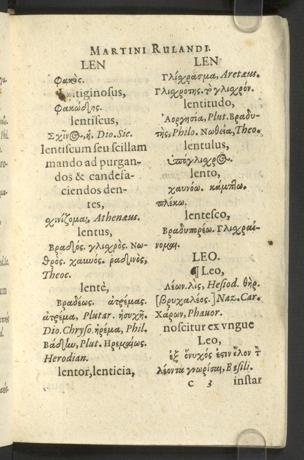 MARTINI RULANDI.
LEN
Φακός.
tiginosus,
Φακώδης.
lentiscus,
Σχῖνος, ἡ. Dio. Sic.
lentiscum seu scillam
mando ad purgan-
dos & candefa-
ciendos den-
tes,
σχινίζομαι, Athenæus.
lentus,
Βραδύς. γλίσχρος. Νω-
θρός. χαυνός. ῥαδινός,
Theoc.
lentè,
Βραδέως. ἀτρέμας.
ἀτρέμα, Plutar. ἡσυχῇ.
Dio. Chryso. ἠρέμα, Phil.
Βάδην, Plut. Ἠρεμαίως.
Herodian.
lentor, lenticia,
LEN
Γλίσχρασμα, Aretæus.
Γλισχρότης. τὸ γλίσχρον.
lentitudo,
Ἀοργησία, Plut. Βραδυ-
τής, Philo. Νωθεία, Theo.
lentulus,
ὑπόγλισχρος.
lento,
χαυνόω. κάμπτω.
πλέκω.
lentesco,
Βραδυπορέω. Γλισχραί-
νομαι.
LEO.
¶ Leo,
Λέων. λὶς, Hesiod. θὴρ.
[βρυχαλέος.] Naz. Car.
Χάρων, Phavor.
noscitur ex vngue
Leo,
ἐξ ὄνυχός ἐστιν ὅλον τ
λέοντα γνωρίσαι, Basili.
C 3
instar